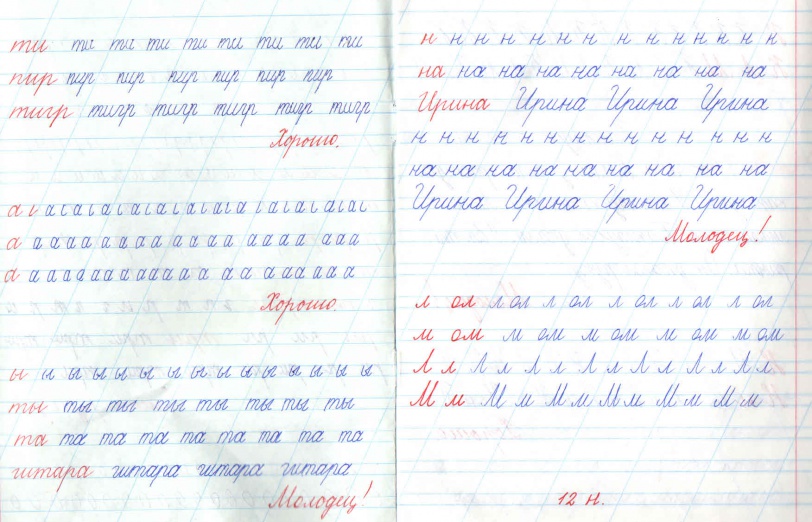 ти ти ти ти ти ти ти ти ти
пир пир пир пир пир пир пир
тигр тигр тигр тигр тигр тигр
Хорошо.
а ι аιаιаιаιаιаιаιаιаιаιаιаι
а а а а а а а а а а а а а а а а а а а а
а а а а а а а а а а а а а а а а а а а а
ы ы ы ы ы ы ы ы ы ы ы ы ы ы ы
ты ты ты ты ты ты ты ты
та та та та та та та та та
гитара гитара гитара гитара
Молодец!
н н н н н н н н н н н н н
на на на на на на на на на
Ирина Ирина Ирина Ирина
н н н н н н н н н н н н н н
на на на на на на на на на
Ирина Ирина Ирина Ирина
Молодец!
л ол л ол л ол л ол л ол л ол
м ом м ом м ом м ом м ом
Л л Л л Л л Л л Л л Л л Л л
М м М м М м М м М м М м
12 н.